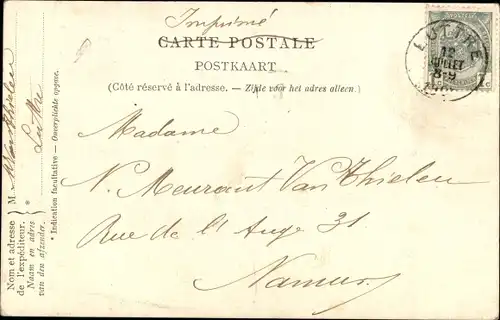 Imprimé
CARTE POSTALE
POSTKAART
(Côté réservé à l'adresse. — Zijde voor het adres alleen.)
LUTTRE
12
JUILLET
8-9
Madame
N. Meurant Van Thielen
Rue de l'Ange 31
Namur
Nom et adresse de l'expéditeur.
Naam en adres van den afzender.
M.
Luttre
* Indication facultative — Onverplichte opgave.